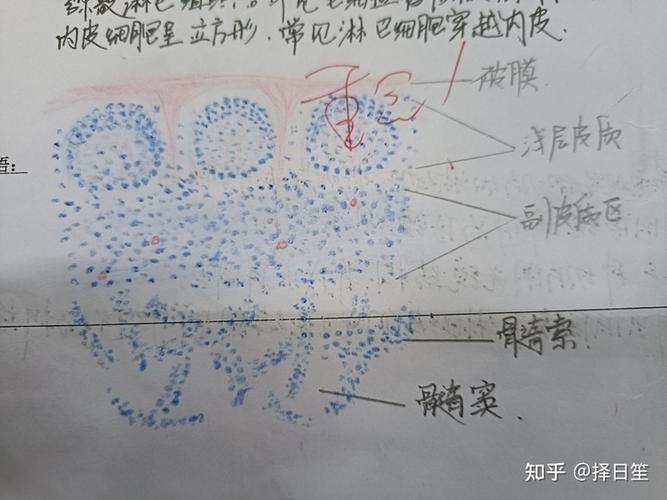 淋巴组织
内皮细胞呈立方形.常见淋巴细胞穿越内皮.
被膜
浅层皮质
语:
副皮质区
髓索
髓窦.
知乎 @择日笙